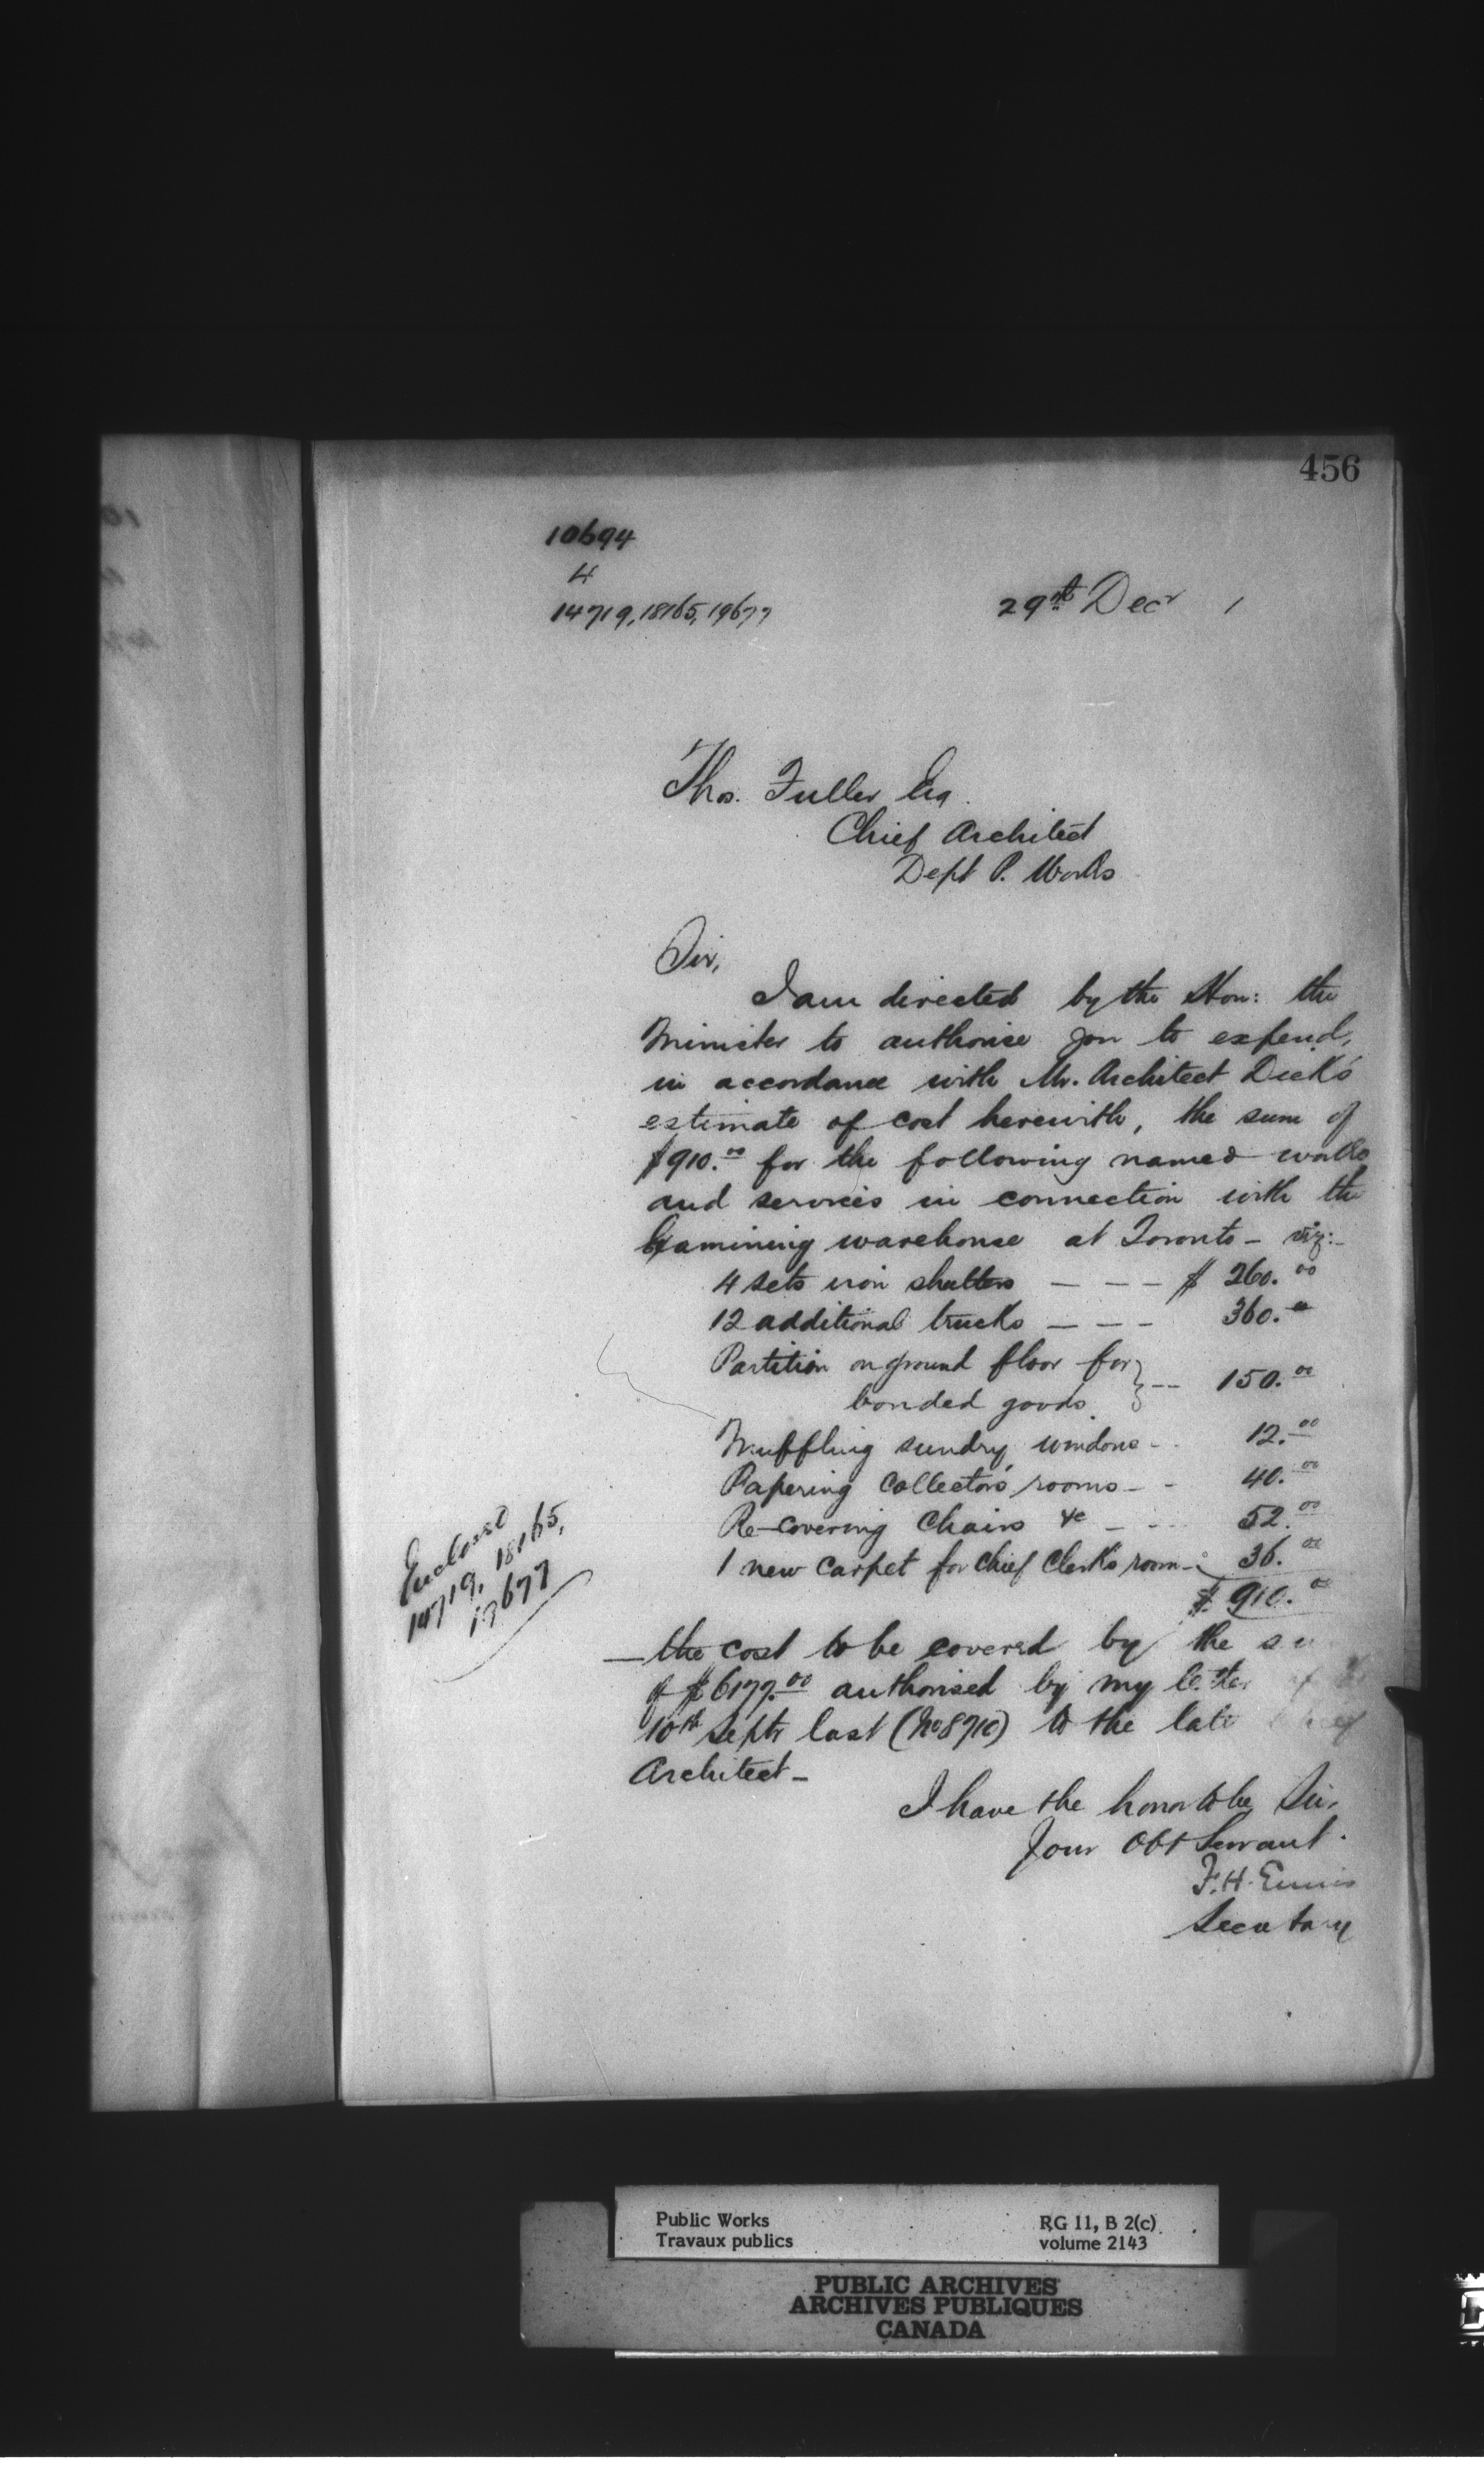 456
10694
4
14719, 18165, 19677
29th Decr 1
Thos. Fuller Esq.
Chief Architect
Dept P. Works
Sir,
I am directed by the Hon: the
Minister to authorise you to expend,
in accordance with Mr. Architect Dick's
estimate of cost herewith, the sum of
$910.00 for the following named works
and services in connection with the
Examining warehouse at Toronto - viz:-
4 sets iron shutters - - - $ 260.00
12 additional trucks - - - 360.00
Partition on ground floor for
bonded goods } -- 150.00
Muffling sundry windows - - 12.00
Papering Collector's rooms - - 40.00
Re-covering Chairs &c - - - 52.00
1 new carpet for Chief Clerk's room - 36.00
$ 910.00
Enclosed
14719, 18165,
19677
- the cost to be covered by the su
of $6177.00 authorised by my letter of
10th Septr last (No 8710) to the late Chief
Architect -
I have the honor to be, Sir,
Your Obt Servant.
F.H. Ennis
Secretary
Public Works
Travaux publics
RG 11, B 2(c)
volume 2143
PUBLIC ARCHIVES
ARCHIVES PUBLIQUES
CANADA